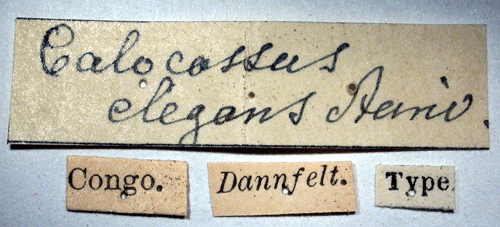 Calocossus
elegans Auriv.
Congo. Dannfelt. Type.